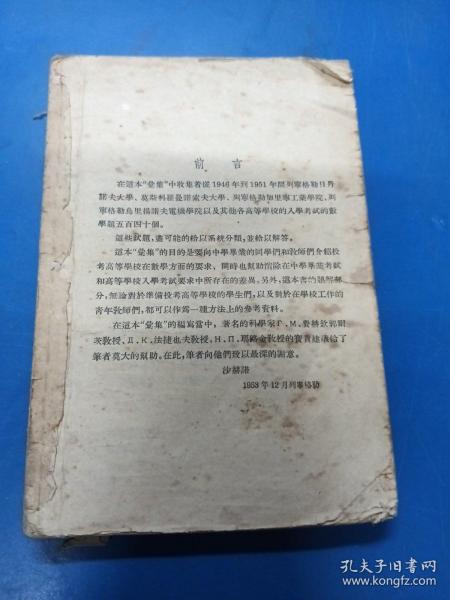 前言
在這本“彙集”中收集著從1946年到1951年間列寧格勒日丹
諾夫大學、莫斯科羅曼諾索夫大學、列寧格勒加里寧工業學院、列
寧格勒烏里揚諾夫電機學院以及其他各高等學校的入學考試的數
學題五百四十個。
這些試題,盡可能的給以系統分類,並給以解答。
這本“彙集”的目的是要向中學畢業的同學們和教師們介紹投
考高等學校在數學方面的要求,同時也幫助消除在中學畢業考試
和高等學校入學考試要求中所存在的差異。另外,這本書的題解部
分,無論對於準備投考高等學校的學生們,以及對於在學校工作的
青年教師們,都可以作爲一種方法上的參考資料。
在這本“彙集”的編寫當中,著名的科學家Г.М.費赫欽郭爾
茨教授、Д.К.法捷也夫教授、Н.П.
教授的寶貴建議給了
筆者莫大的幫助。在此,筆者向他們致以最深的謝意。
沙赫諾
1953年12月列寧格勒
孔夫子旧书网
www.kongfz.com